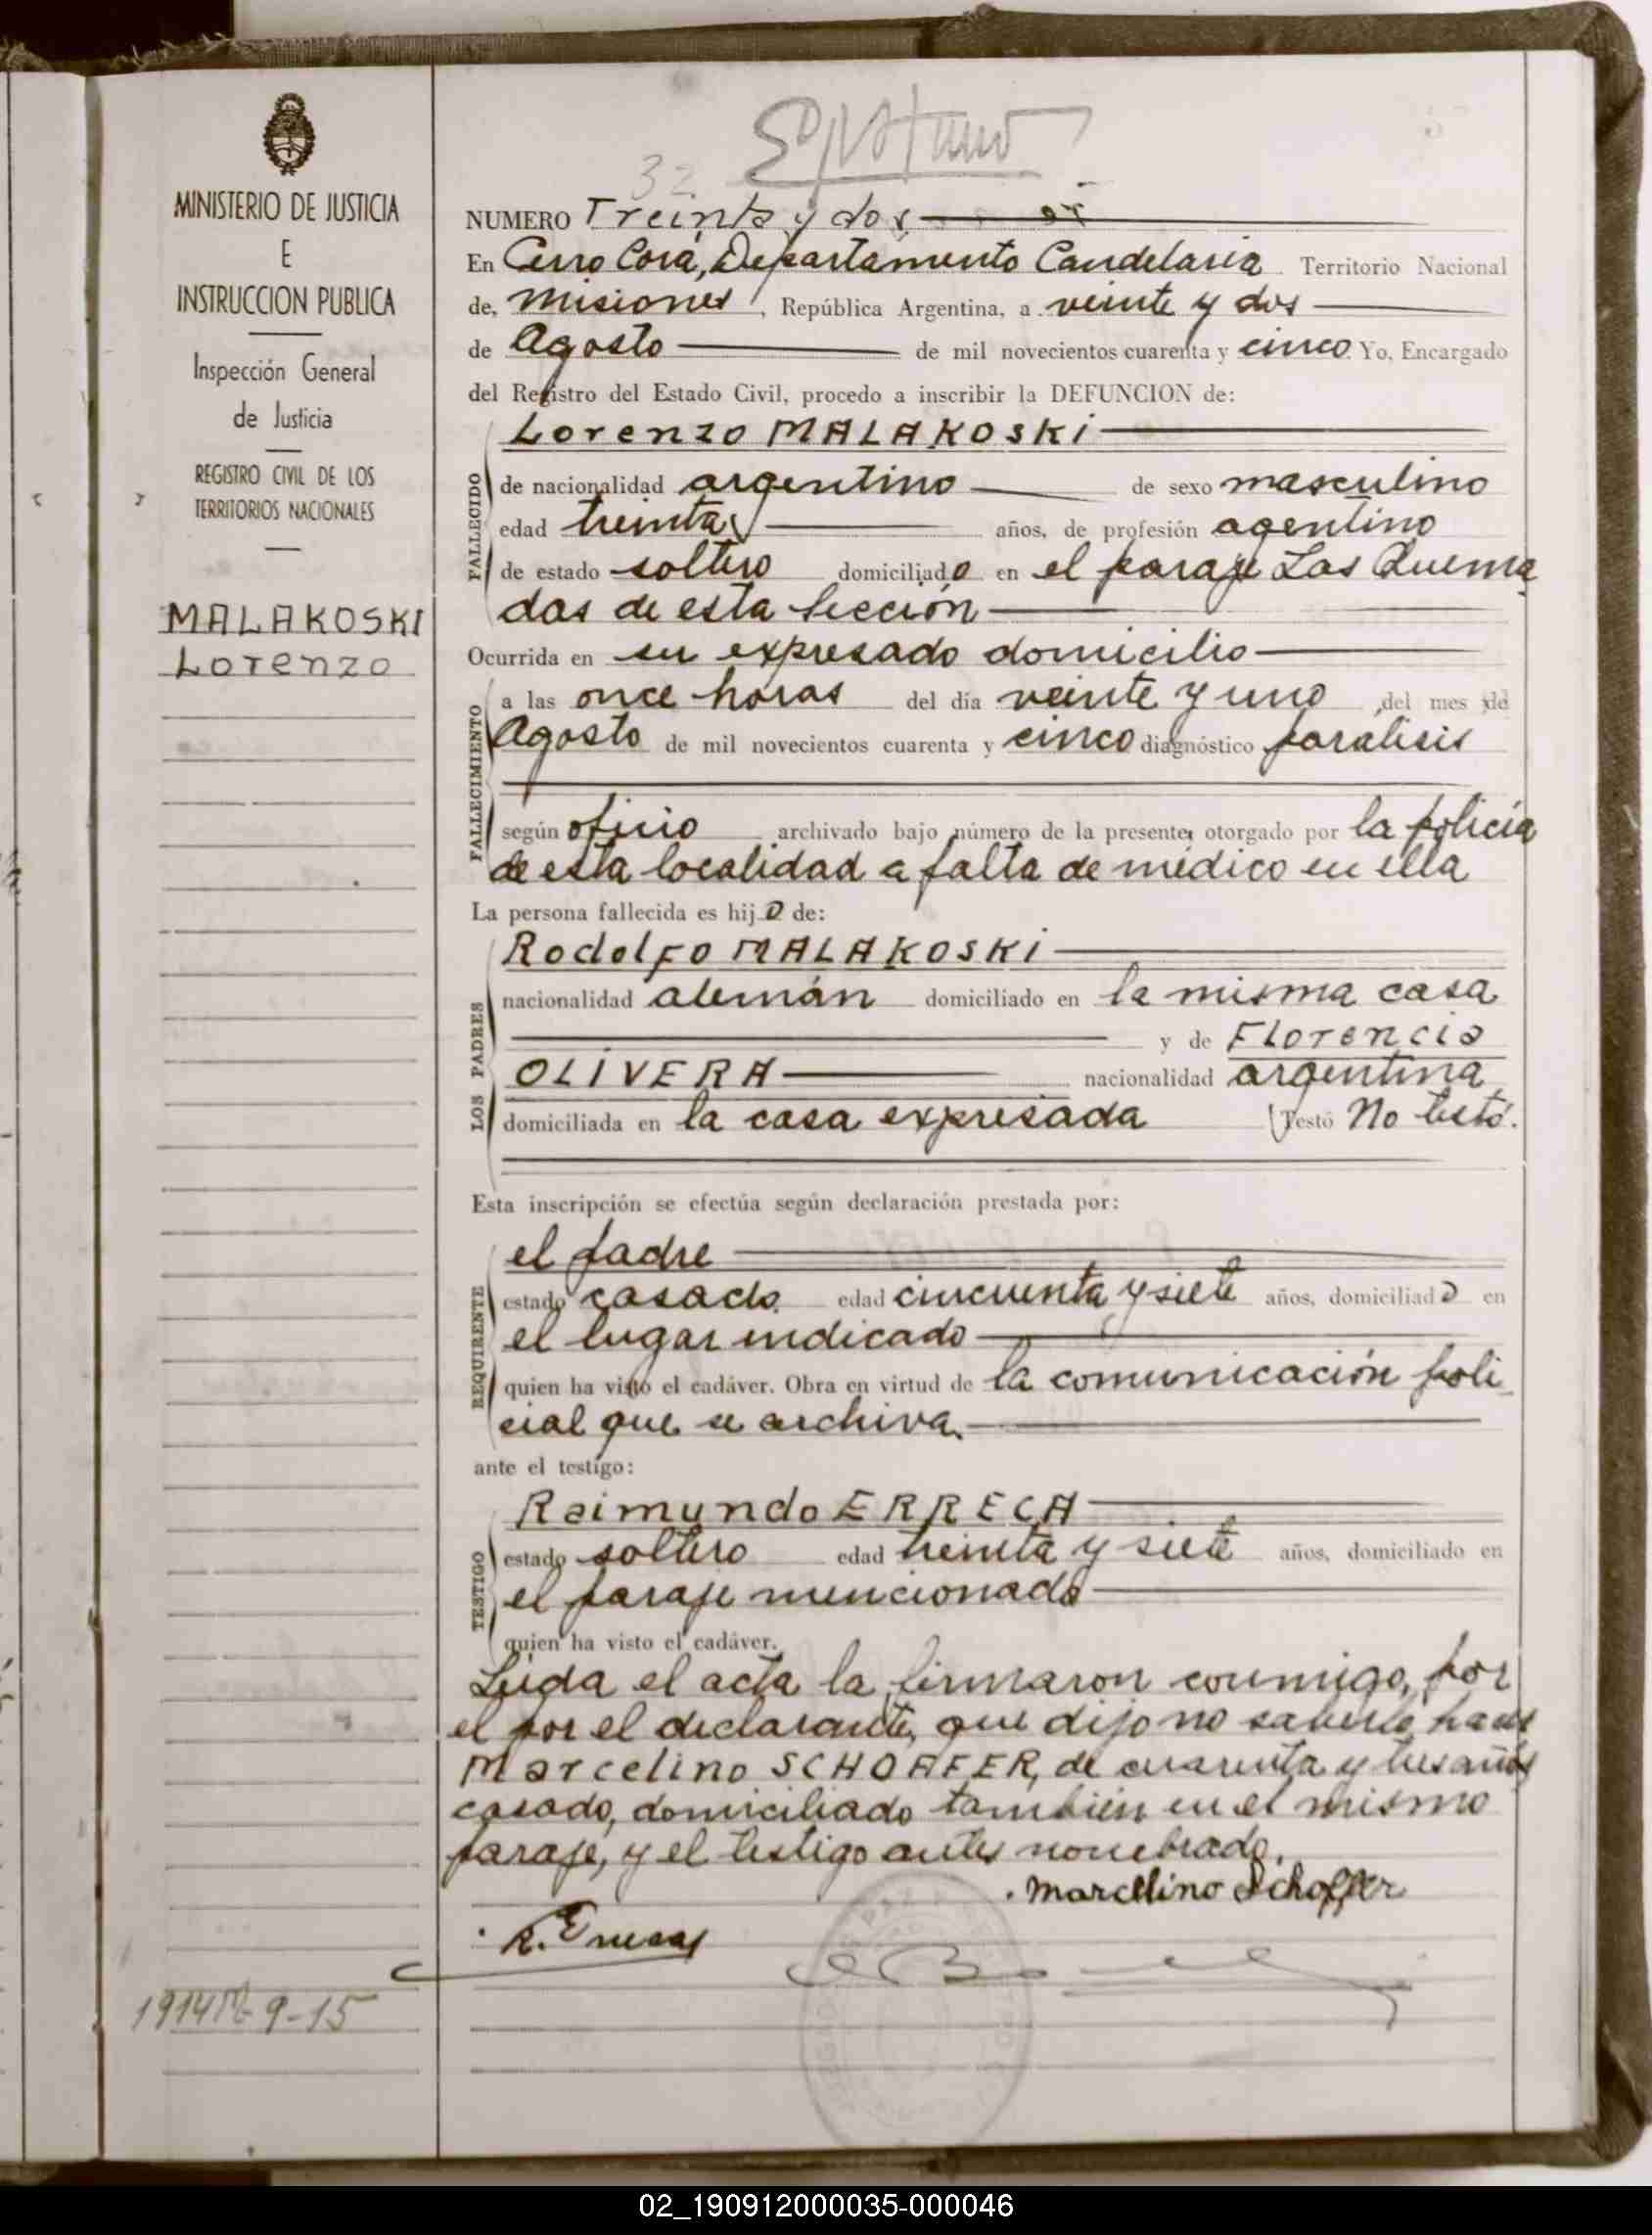 MINISTERIO DE JUSTICIA
E
INSTRUCCION PUBLICA
Inspección General
de Justicia
REGISTRO CIVIL DE LOS
TERRITORIOS NACIONALES
MALAKOSKI
Lorenzo
32
NUMERO Treinta y dos
En Cerro Corá, Departamento Candelaria Territorio Nacional
de, Misiones, República Argentina, a veinte y dos
de Agosto de mil novecientos cuarenta y cinco. Yo, Encargado
del Registro del Estado Civil, procedo a inscribir la DEFUNCION de:
Lorenzo MALAKOSKI
FALLECIDO
de nacionalidad argentino de sexo masculino
edad treinta años, de profesión agentino
de estado soltero domiciliado en el paraje Las Quema
das de esta Sección
Ocurrida en su expresado domicilio
FALLECIMIENTO
a las once horas del día veinte y uno del mes de
Agosto de mil novecientos cuarenta y cinco diagnóstico paralisis
según oficio archivado bajo número de la presente, otorgado por la policía
de esta localidad a falta de médico en ella
La persona fallecida es hijo de:
LOS PADRES
Rodolfo MALAKOSKI
nacionalidad alemán domiciliado en la misma casa
y de Florencia
OLIVERA nacionalidad argentina
domiciliada en la casa expresada (Testó No testó.
Esta inscripción se efectúa según declaración prestada por:
REQUIRENTE
el padre
estado casado edad cincuenta y siete años, domiciliado en
el lugar indicado
quien ha visto el cadáver. Obra en virtud de la comunicación poli
cial que se archiva.
ante el testigo:
TESTIGO
Raimundo ERRECA
estado soltero edad treinta y siete años, domiciliado en
el paraje mencionado
quien ha visto el cadáver.
Leída el acta la firmaron conmigo, por
el por el declarante, que dijo no saberlo hacer
Marcelino SCHOAFER, de cuarenta y tres años
casado, domiciliado también en el mismo
paraje, y el testigo antes nombrado.
Marcelino Schoffer
R. Erreca
9-15
02_190912000035-000046